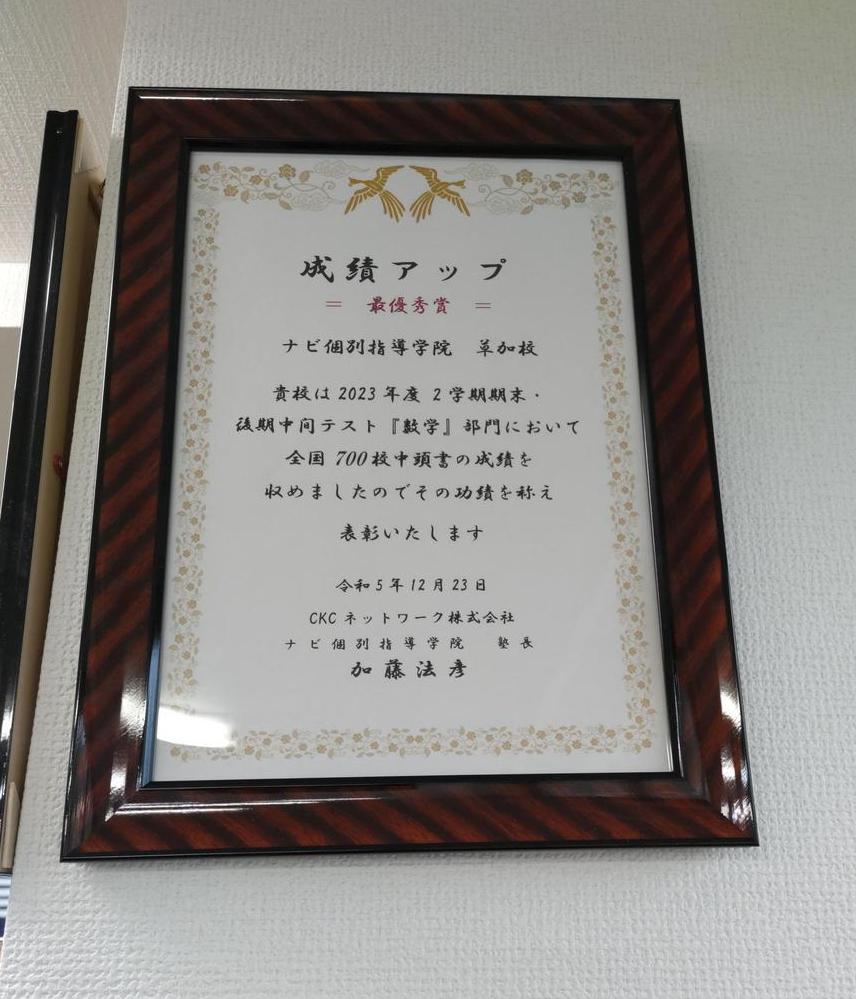 成績アップ
＝ 最優秀賞 ＝
ナビ個別指導学院 草加校
貴校は2023年度 2学期期末・
後期中間テスト『数学』部門において
全国700校中頭書の成績を
収めましたのでその功績を称え
表彰いたします
令和5年12月23日
CKCネットワーク株式会社
ナビ個別指導学院 塾長
加藤法彦